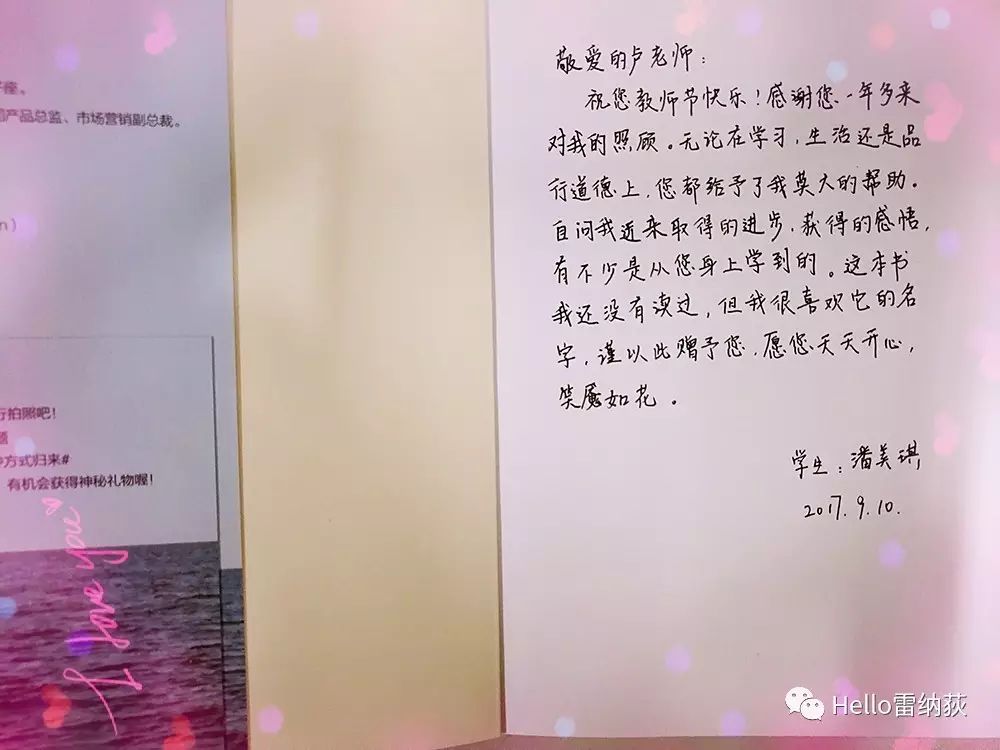 字座。
产品总监、市场营销副总裁。
n）
行拍照吧！
题
方式归来#
有机会获得神秘礼物喔！
I love you
敬爱的卢老师：
祝您教师节快乐！感谢您一年多来
对我的照顾。无论在学习，生活还是品
行道德上，您都给予了我莫大的帮助。
自问我近来取得的进步，获得的感悟，
有不少是从您身上学到的。这本书
我还没有读过，但我很喜欢它的名
字，谨以此赠予您，愿您天天开心，
笑靥如花。
学生：潘美琪
2017.9.10.
Hello雷纳荻